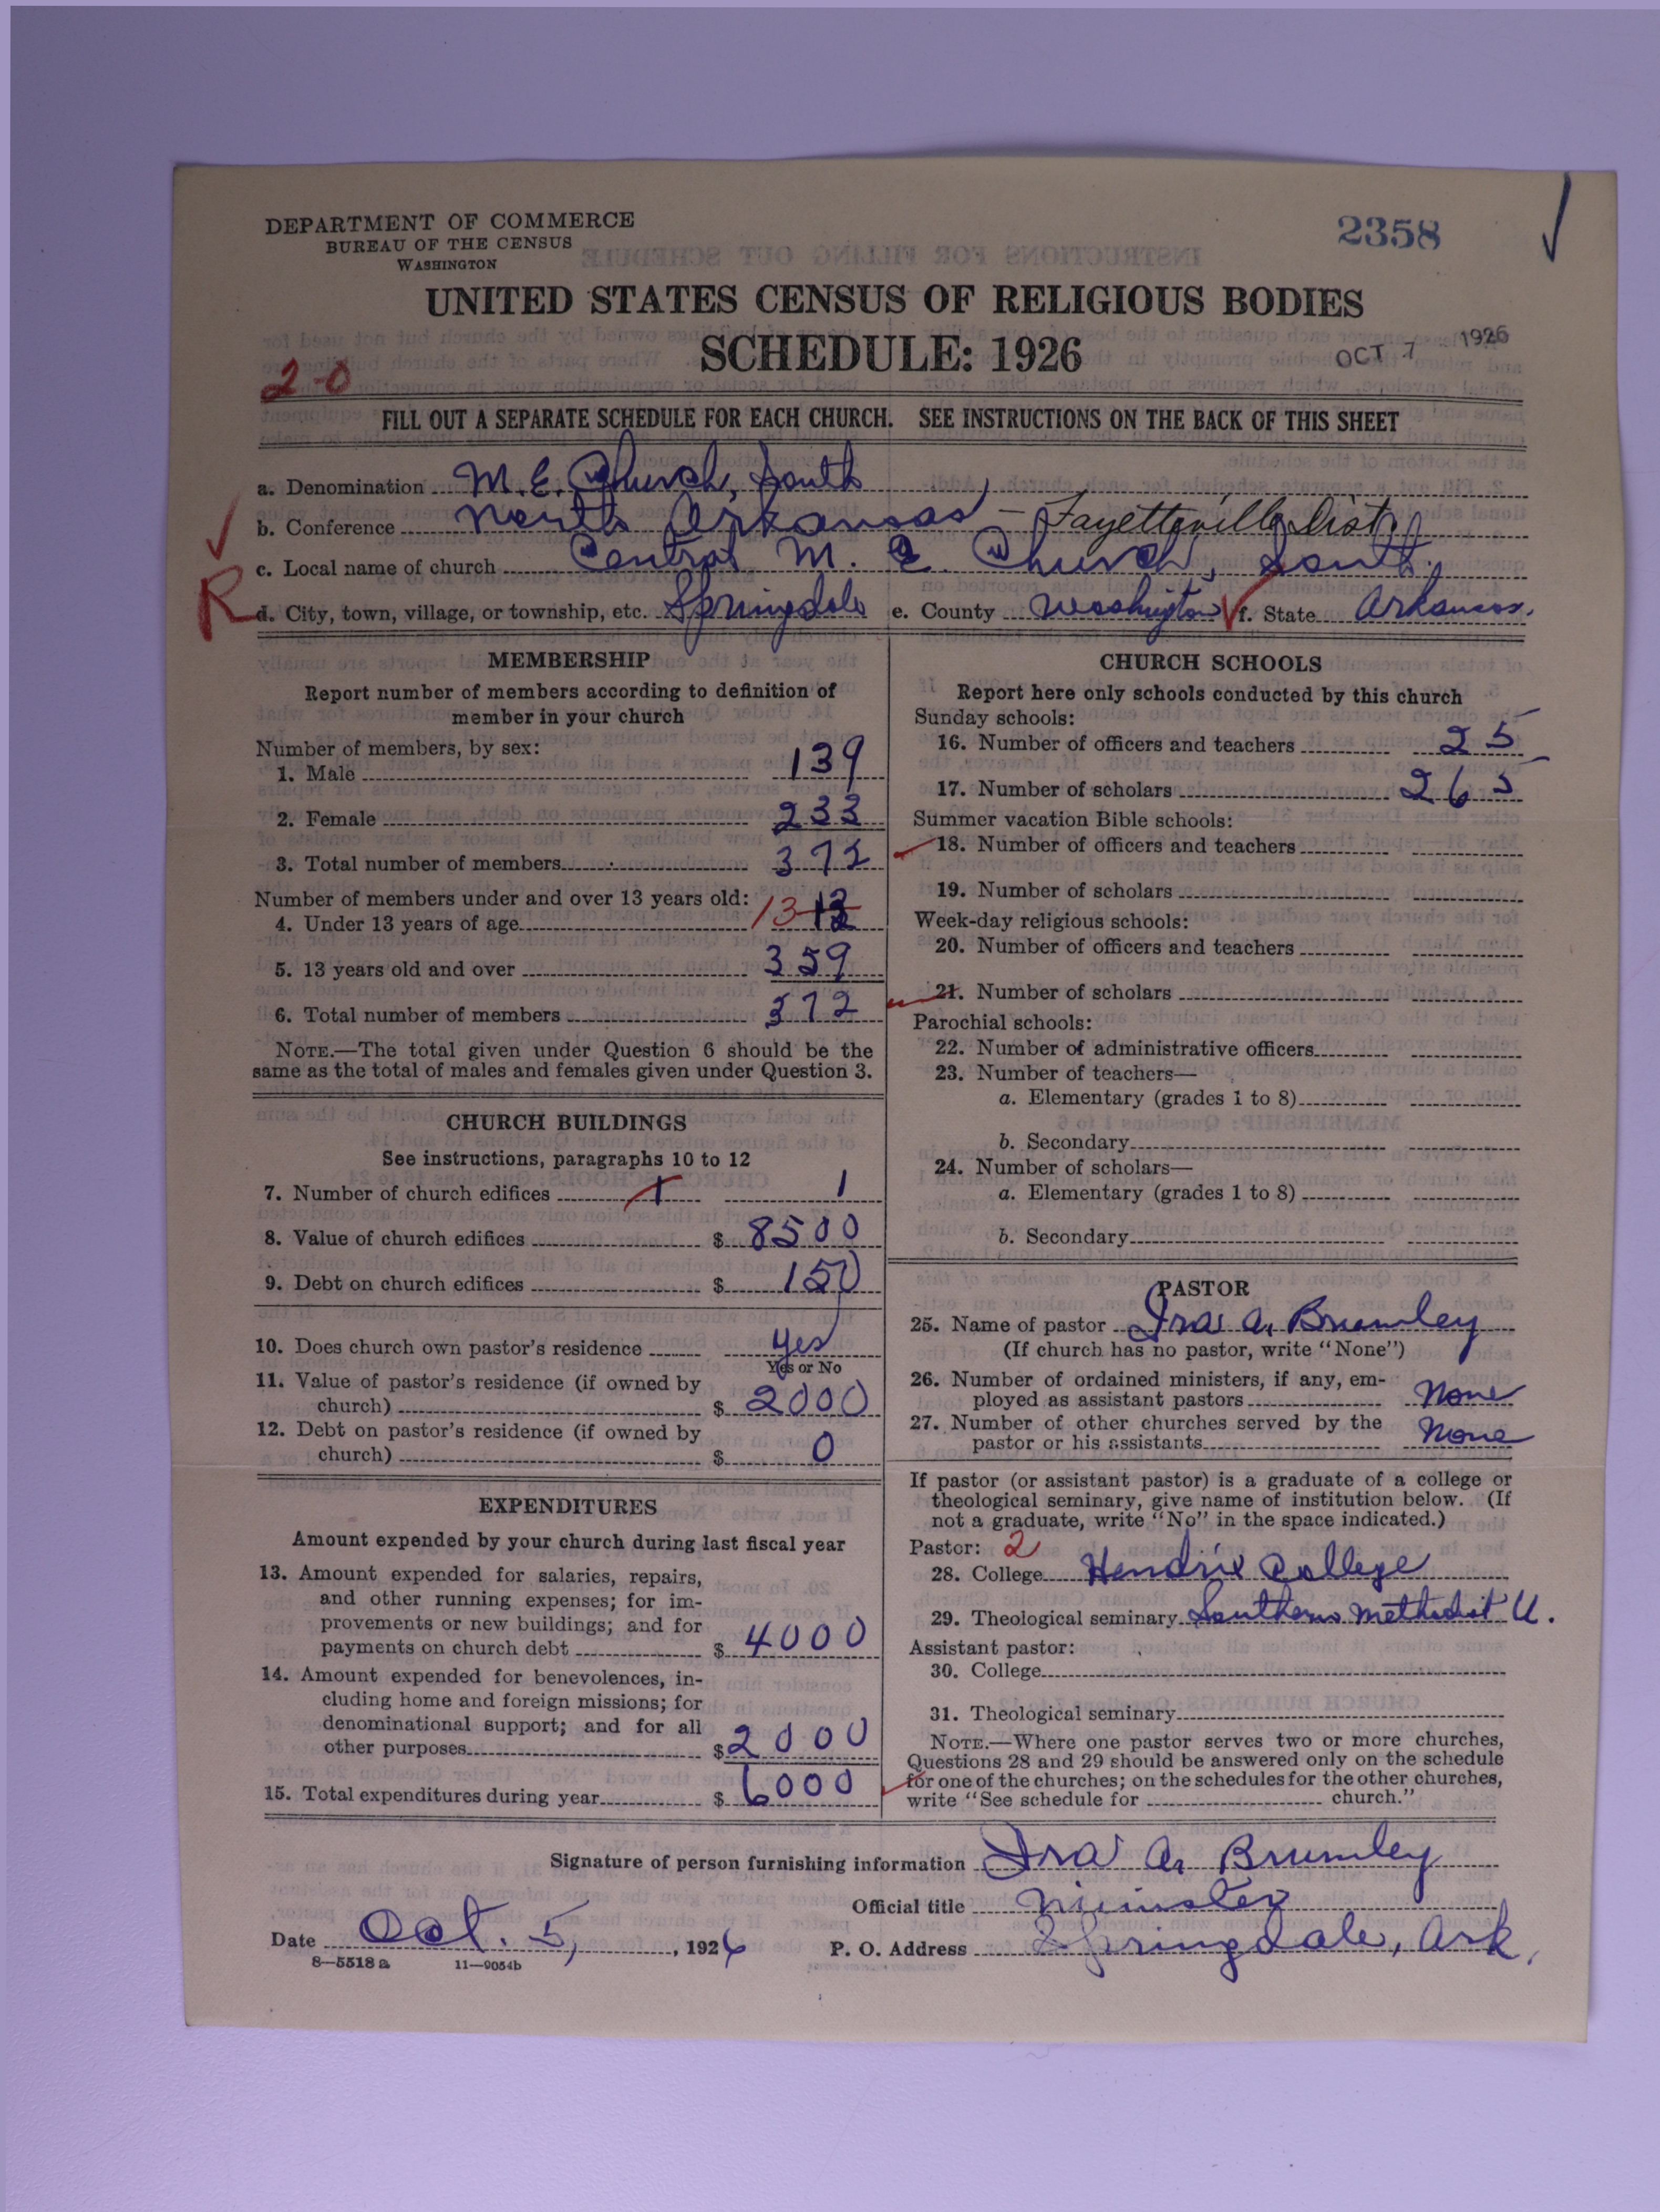 DEPARTMENT OF COMMERCE
BUREAU OF THE CENSUS
WASHINGTON
2358
UNITED STATES CENSUS OF RELIGIOUS BODIES
SCHEDULE: 1926
OCT 7 1926
2-0
FILL OUT A SEPARATE SCHEDULE FOR EACH CHURCH. SEE INSTRUCTIONS ON THE BACK OF THIS SHEET
a. Denomination M.E. Church, South
b. Conference North Arkansas - Fayetteville Dist.
c. Local name of church Central M. E. Church, South.
R
d. City, town, village, or township, etc. Springdale e. County Washington f. State Arkansas.
MEMBERSHIP
Report number of members according to definition of
member in your church
Number of members, by sex:
1. Male 139
2. Female 233
3. Total number of members 372
Number of members under and over 13 years old:
4. Under 13 years of age 13
5. 13 years old and over 359
6. Total number of members 372
NOTE.—The total given under Question 6 should be the
same as the total of males and females given under Question 3.
CHURCH BUILDINGS
See instructions, paragraphs 10 to 12
7. Number of church edifices 1 1
8. Value of church edifices $ 8500
9. Debt on church edifices $ 150
10. Does church own pastor's residence yes
Yes or No
11. Value of pastor's residence (if owned by
church) $ 2000
12. Debt on pastor's residence (if owned by
church) $ 0
EXPENDITURES
Amount expended by your church during last fiscal year
13. Amount expended for salaries, repairs,
and other running expenses; for im-
provements or new buildings; and for
payments on church debt $ 4000
14. Amount expended for benevolences, in-
cluding home and foreign missions; for
denominational support; and for all
other purposes $ 2000
15. Total expenditures during year $ 6000
CHURCH SCHOOLS
Report here only schools conducted by this church
Sunday schools:
16. Number of officers and teachers 25
17. Number of scholars 265
Summer vacation Bible schools:
18. Number of officers and teachers
19. Number of scholars
Week-day religious schools:
20. Number of officers and teachers
21. Number of scholars
Parochial schools:
22. Number of administrative officers
23. Number of teachers—
a. Elementary (grades 1 to 8)
b. Secondary
24. Number of scholars—
a. Elementary (grades 1 to 8)
b. Secondary
PASTOR
25. Name of pastor Ira A. Brumley
(If church has no pastor, write "None")
26. Number of ordained ministers, if any, em-
ployed as assistant pastors None
27. Number of other churches served by the
pastor or his assistants None
If pastor (or assistant pastor) is a graduate of a college or
theological seminary, give name of institution below. (If
not a graduate, write "No" in the space indicated.)
Pastor: 2
28. College Hendrix College
29. Theological seminary Southern Methodist U.
Assistant pastor:
30. College
31. Theological seminary
NOTE.—Where one pastor serves two or more churches,
Questions 28 and 29 should be answered only on the schedule
for one of the churches; on the schedules for the other churches,
write "See schedule for church."
Signature of person furnishing information Ira A. Brumley
Official title Minister
Date Oct. 5, 1926 P. O. Address Springdale, Ark.
8—5518 a 11—9054b